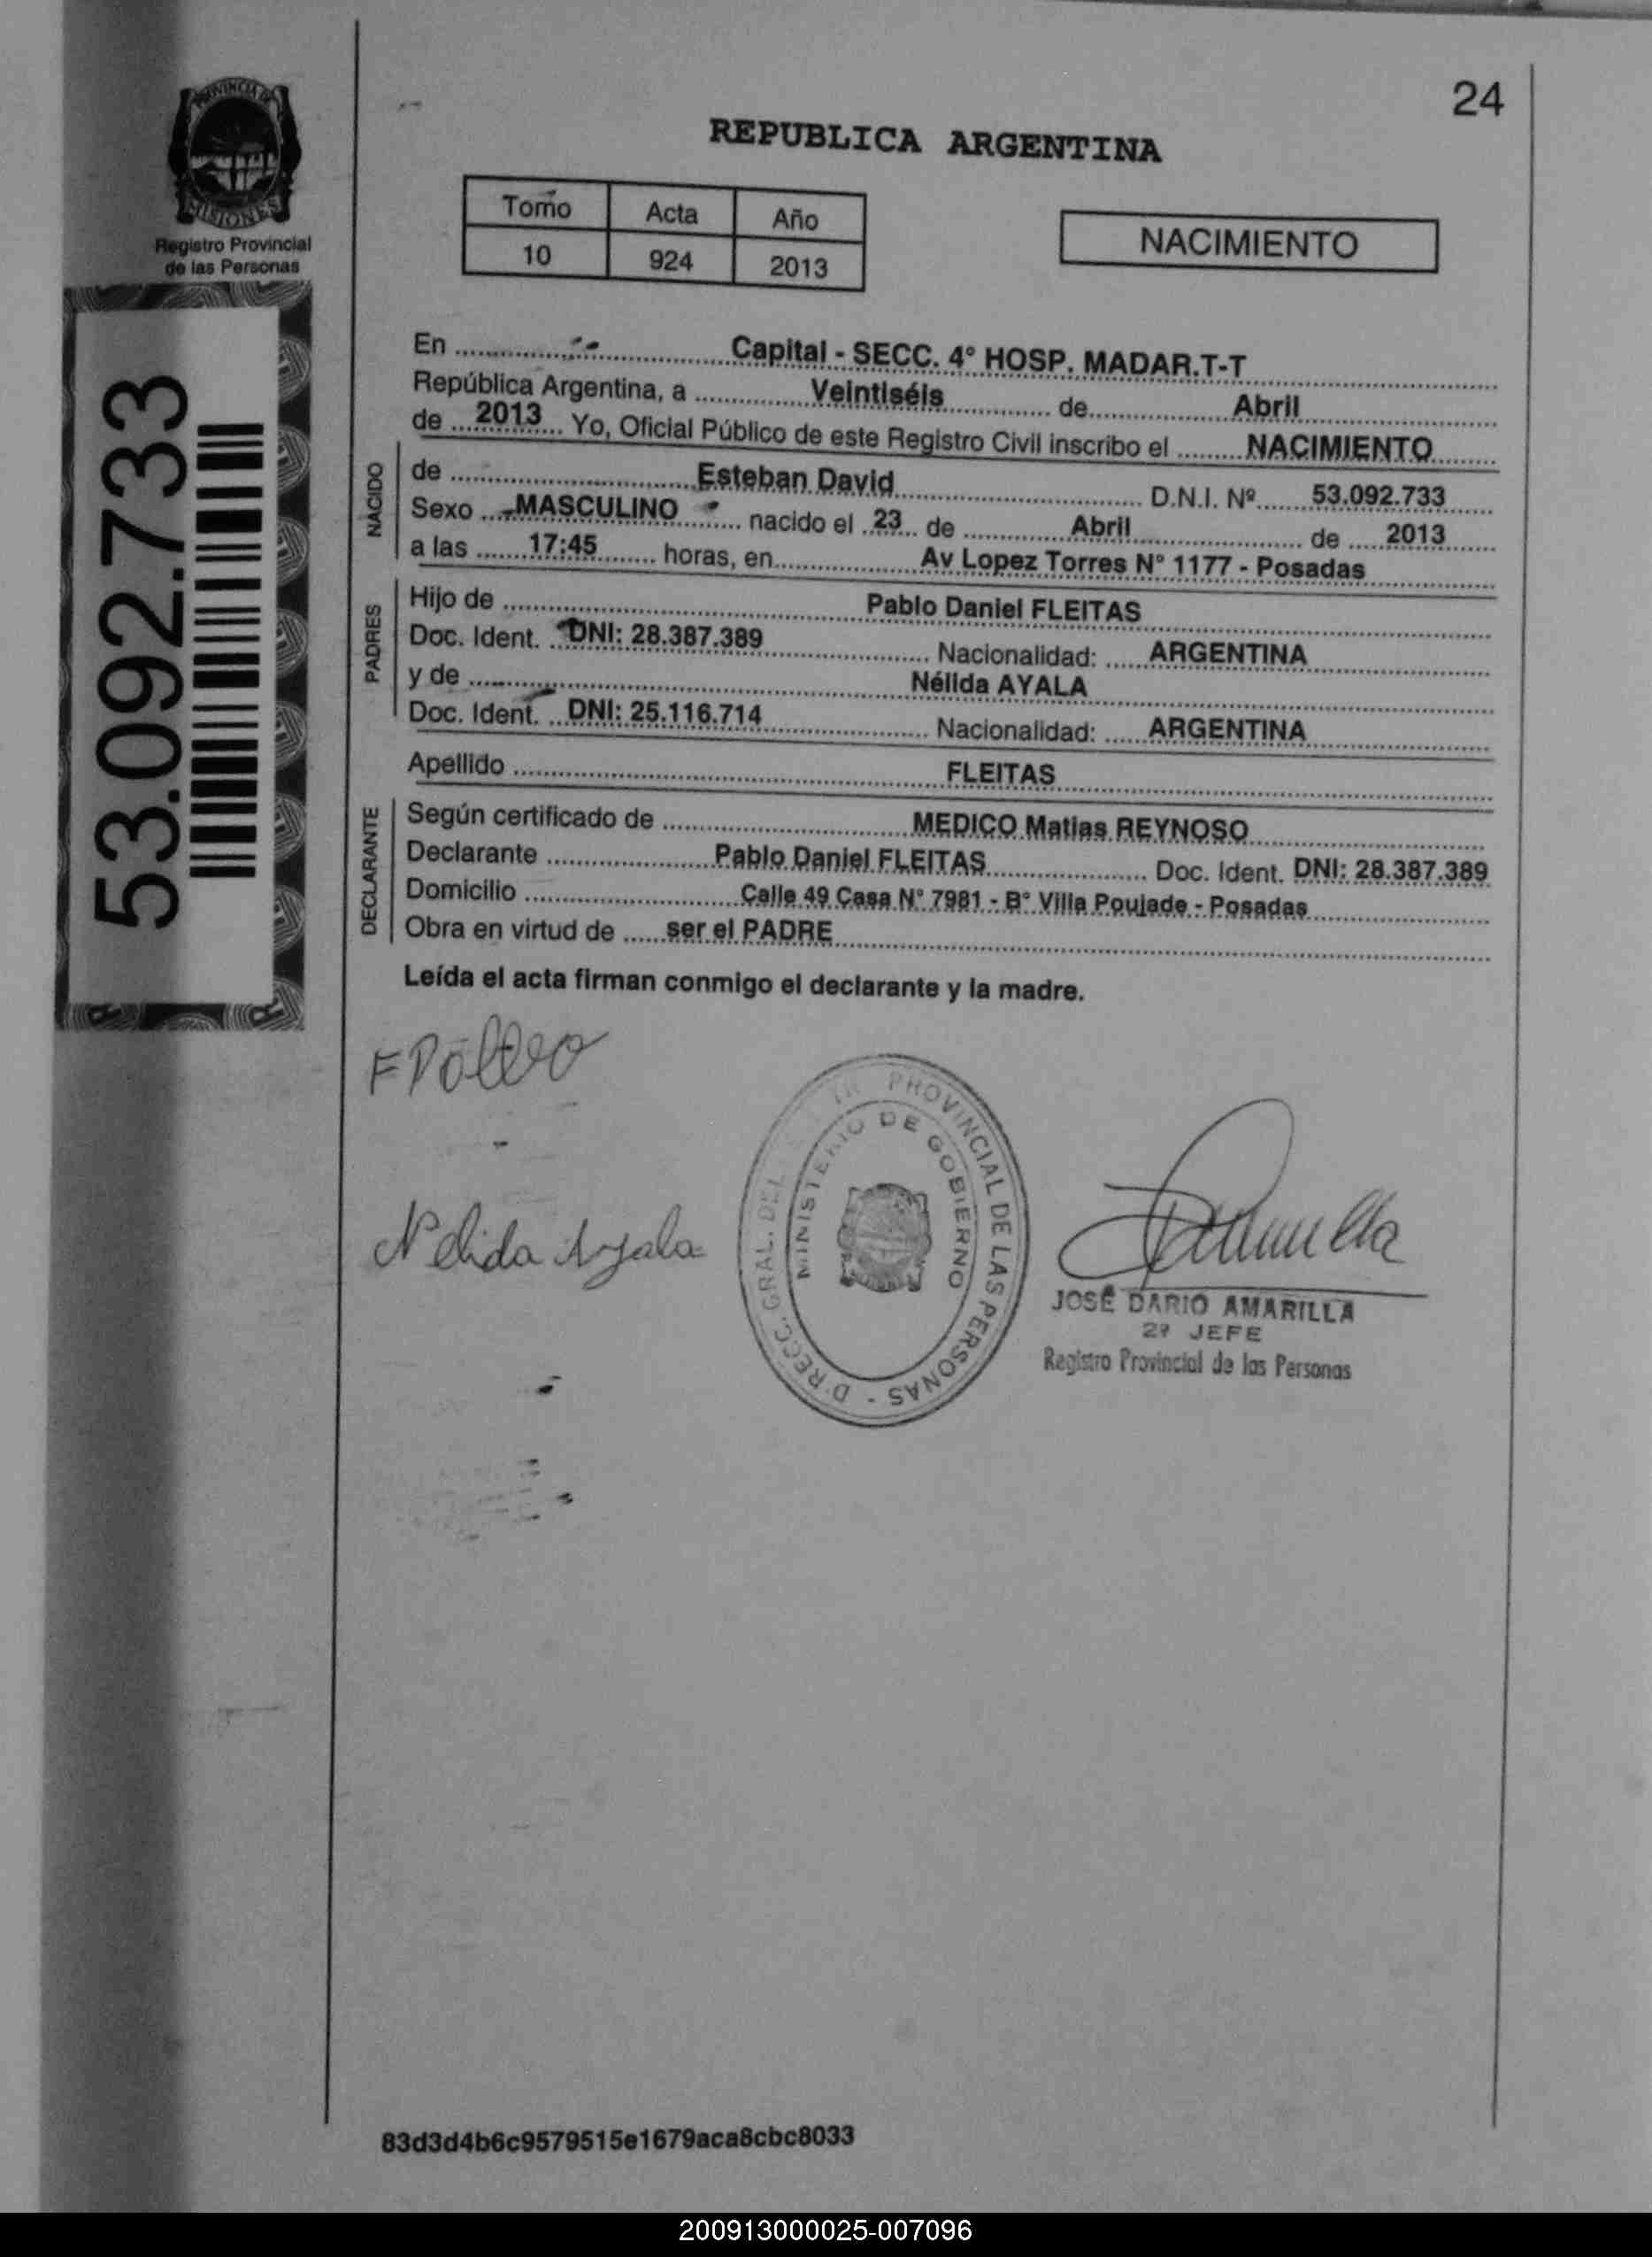 24
PROVINCIA DE
MISIONES
Registro Provincial
de las Personas
53.092.733
REPUBLICA ARGENTINA
Tomo Acta Año
10 924 2013
NACIMIENTO
En Capital - SECC. 4° HOSP. MADAR.T-T
República Argentina, a Veintiséis de Abril
de 2013 Yo, Oficial Público de este Registro Civil inscribo el NACIMIENTO
NACIDO
de Esteban David D.N.I. Nº 53.092.733
Sexo MASCULINO nacido el 23 de Abril de 2013
a las 17:45 horas, en Av Lopez Torres N° 1177 - Posadas
PADRES
Hijo de Pablo Daniel FLEITAS
Doc. Ident. DNI: 28.387.389 Nacionalidad: ARGENTINA
y de Nélida AYALA
Doc. Ident. DNI: 25.116.714 Nacionalidad: ARGENTINA
Apellido FLEITAS
DECLARANTE
Según certificado de MEDICO Matias REYNOSO
Declarante Pablo Daniel FLEITAS Doc. Ident. DNI: 28.387.389
Domicilio Calle 49 Casa N° 7981 - B° Villa Poujade - Posadas
Obra en virtud de ser el PADRE
Leída el acta firman conmigo el declarante y la madre.
Nelida Ayala
PROVINCIAL DE LAS PERSONAS - DIRECC. GRAL. DEL
MINISTERIO DE GOBIERNO
JOSÉ DARIO AMARILLA
2º JEFE
Registro Provincial de las Personas
83d3d4b6c9579515e1679aca8cbc8033
200913000025-007096